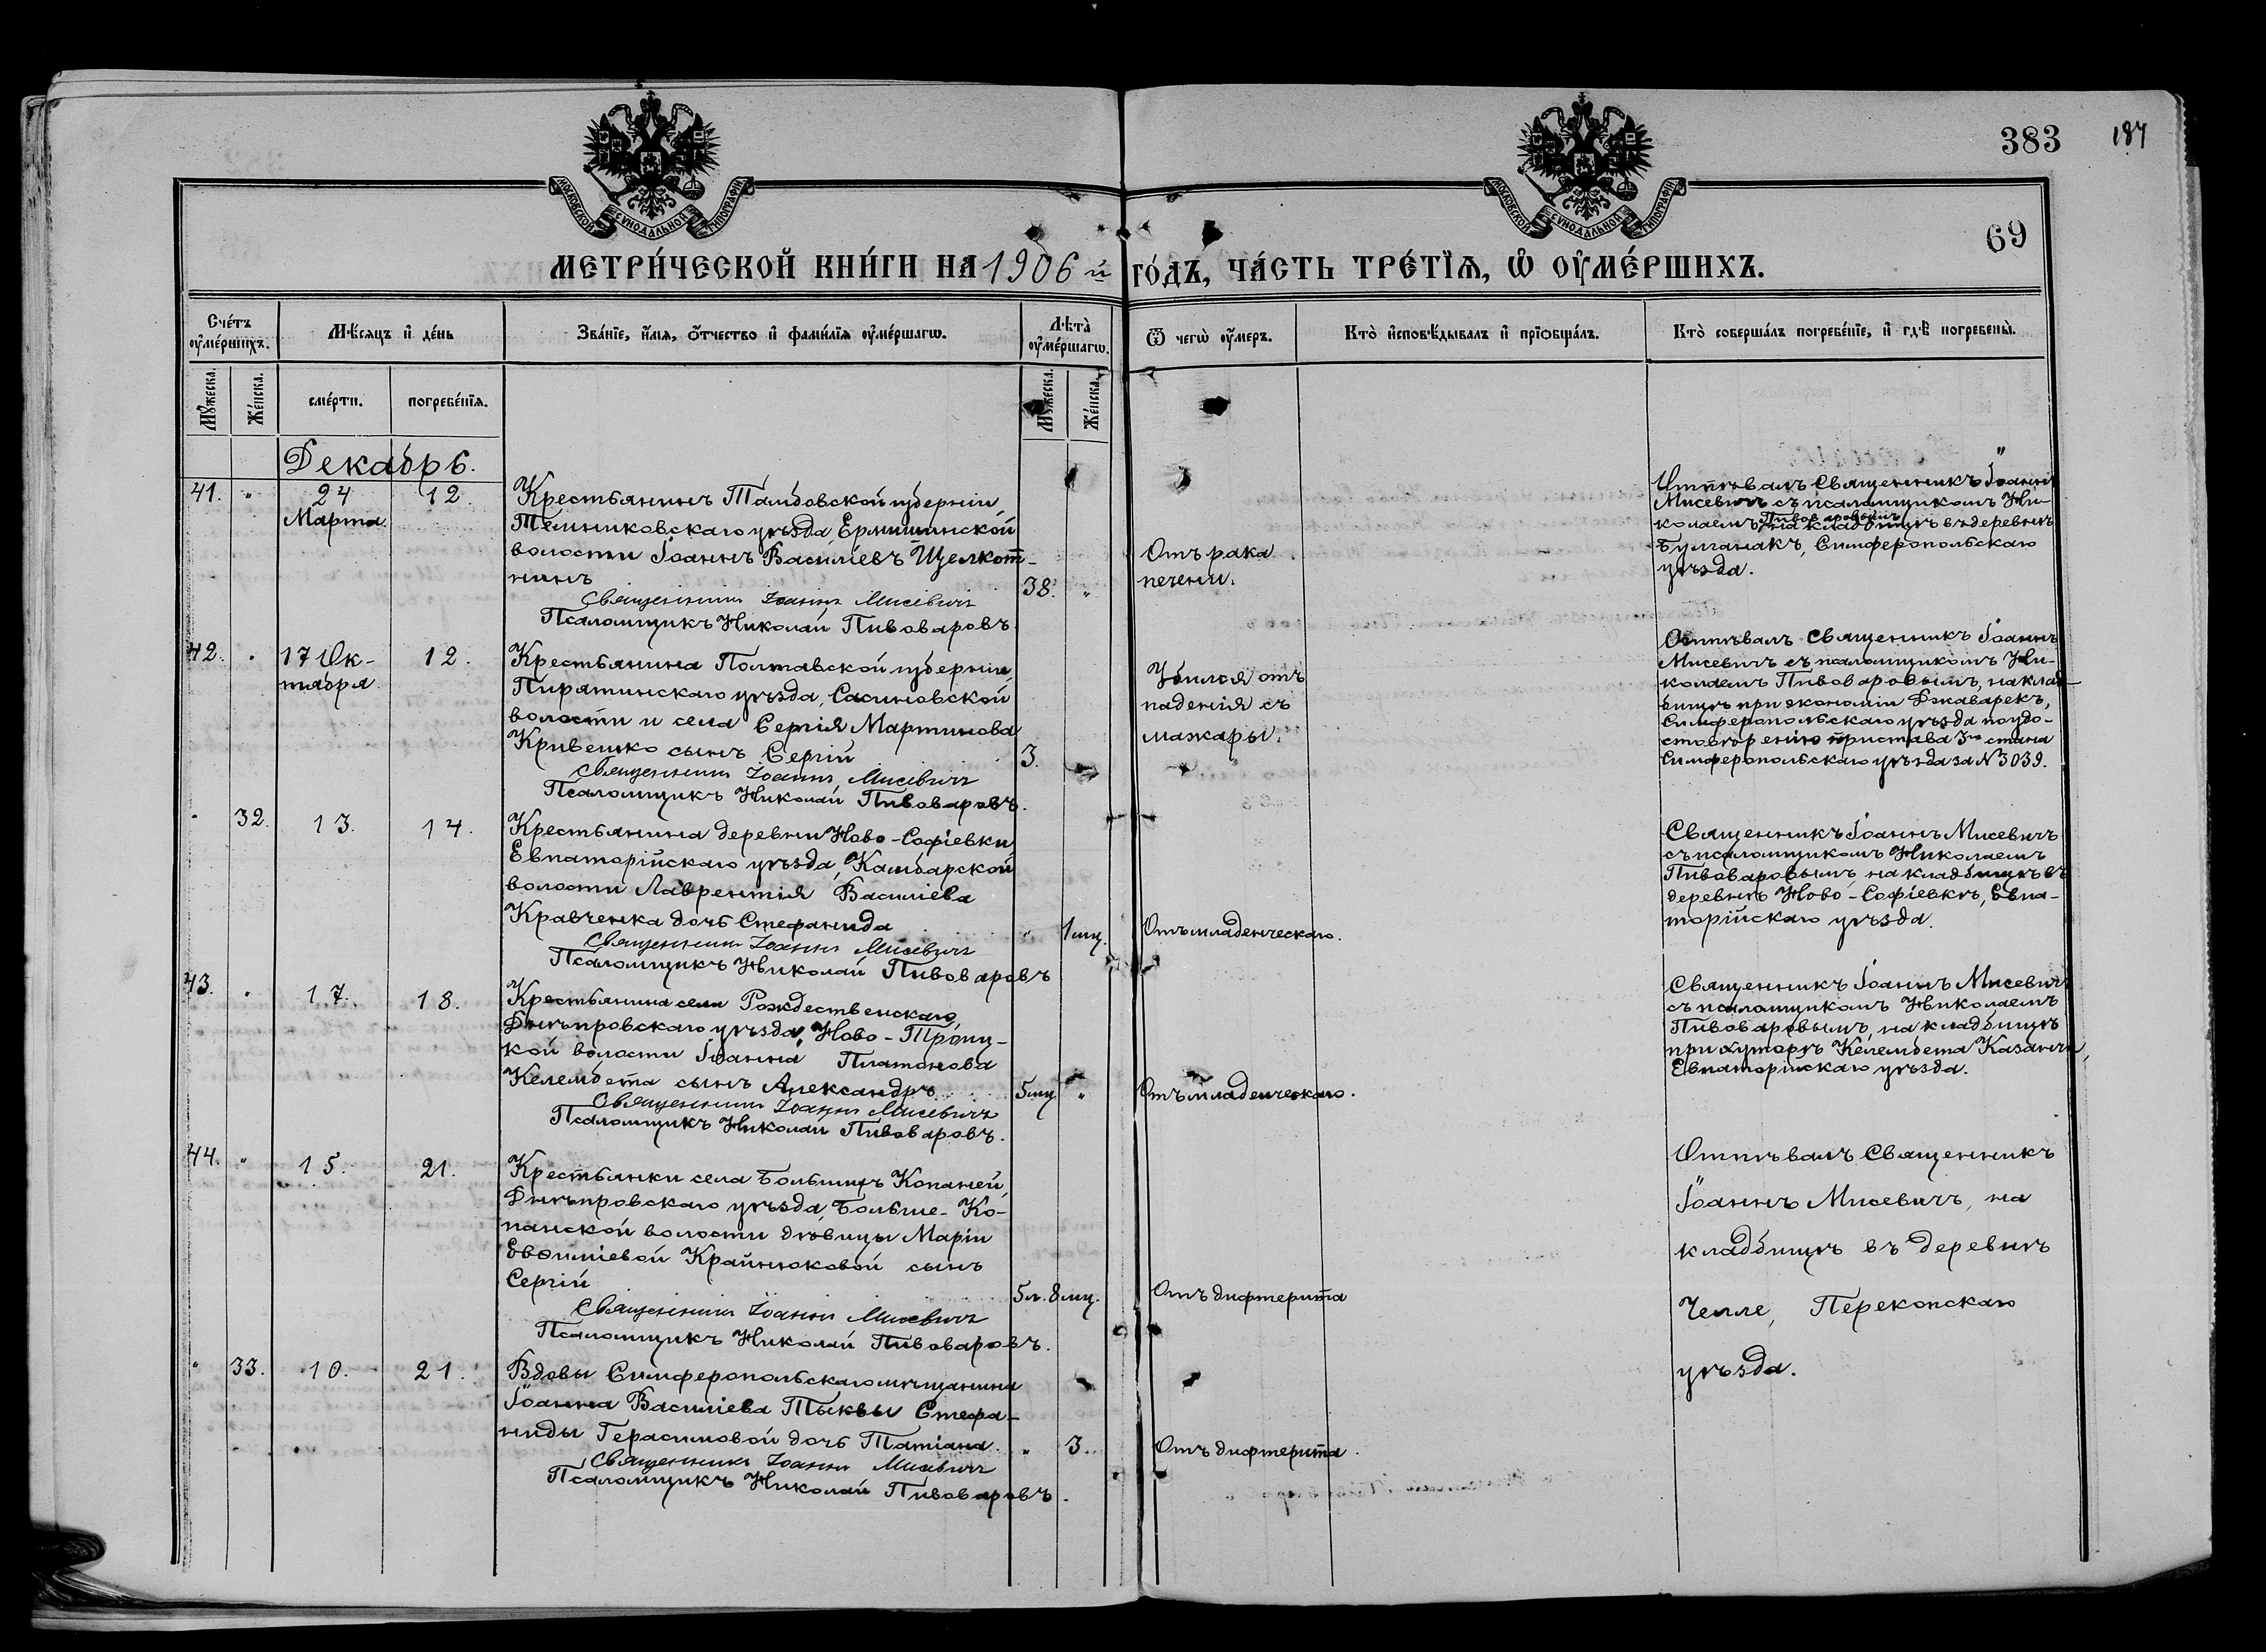 МОСКОВСКОЙ СѴНОДАЛЬНОЙ ТИПОГРАФІИ
МОСКОВСКОЙ СѴНОДАЛЬНОЙ ТИПОГРАФІИ
383
187
69
МЕТРИ́ЧЕСКОЙ КНИ́ГИ НА 1906 й ГО́ДЪ, ЧА́СТЬ ТРЕ́ТЇѦ, Ѡ ОУ҆МЕ́РШИХЪ.
Сче́тъ оу҆ме́ршихъ.
Мѣ́сяцъ и҆ де́нь
Зва́нїе, и҆́мѧ, ѻ҆́тчество и҆ фами́лїѧ оу҆ме́ршагѡ.
Лѣ́та оу҆ме́ршагѡ.
Ѿ чегѡ̀ оу҆́меръ.
Кто̀ и҆сповѣ́дывалъ и҆ прїѡбща́лъ.
Кто̀ соверша́лъ погребе́нїе, и҆ гдѣ̀ погребены̀.
Мꙋ́жеска.
Же́нска.
сме́рти.
погребе́нїѧ.
Мꙋ́жеска.
Же́нска.
Декабрь.
41. " 24 Марта 12.
Крестьянинъ Тамбовской губерніи,
Темниковскаго уѣзда, Ермишинской
волости Іоаннъ Василіевъ Щелкот-
нинъ
38. "
Священникъ Іоаннъ Мисевичъ
Псаломщикъ Николай Пивоваровъ.
Отъ рака
печени.
Отпѣвалъ Священникъ Іоаннъ
Мисевичъ съ псаломщикомъ Ни-
колаемъ Пивоваровымъ на кладбищѣ въ деревнѣ
Булганакъ, Симферопольскаго
уѣзда.
42. " 17 Ок-
тября 12.
Крестьянина Полтавской губерніи,
Пирятинскаго уѣзда, Сасиновской
волости и села Сергія Мартинова
Кривешко сынъ Сергій
3.
Священникъ Іоаннъ Мисевичъ
Псаломщикъ Николай Пивоваровъ.
Убился отъ
паденія съ
мажары.
Отпѣвалъ Священникъ Іоаннъ
Мисевичъ съ псаломщикомъ Ни-
колаемъ Пивоваровымъ, на клад-
бищѣ при экономіи Джаварекъ,
Симферопольскаго уѣзда по удо-
стовѣренію пристава 3го стана
Симферопольскаго уѣзда за № 3039.
" 32. 13. 14.
Крестьянина деревни Ново-Софіевки,
Евпаторійскаго уѣзда, Камбарской
волости Лаврентія Василіева
Кравченка дочь Стефанида
" 1 мц.
Священникъ Іоаннъ Мисевичъ
Псаломщикъ Николай Пивоваровъ
Отъ младенческаго.
Священникъ Іоаннъ Мисевичъ
съ псаломщикомъ Николаемъ
Пивоваровымъ, на кладбищѣ въ
деревнѣ Ново-Софіевкѣ, Евпа-
торійскаго уѣзда.
43. " 17. 18.
Крестьянина села Рождественскаго,
Днѣпровскаго уѣзда, Ново-Троиц-
кой волости Іоанна Платонова
Келембета сынъ Александръ
5 мц. "
Священникъ Іоаннъ Мисевичъ
Псаломщикъ Николай Пивоваровъ.
Отъ младенческаго.
Священникъ Іоаннъ Мисевичъ
съ псаломщикомъ Николаемъ
Пивоваровымъ, на кладбищѣ
при хуторѣ Келембета
Евпаторійскаго уѣзда.
44. " 15. 21.
Крестьянки села Большихъ Копаней,
Днѣпровскаго уѣзда, Больше-Ко-
панской волости дѣвицы Маріи
Евѳиміевой Крайнюковой сынъ
Сергій
5 л. 8 мц.
Священникъ Іоаннъ Мисевичъ
Псаломщикъ Николай Пивоваровъ.
Отъ дифтерита
Отпѣвалъ Священникъ
Іоаннъ Мисевичъ, на
кладбищѣ въ деревнѣ
Челле, Перекопскаго
уѣзда.
" 33. 10. 21.
Вдовы Симферопольскаго мѣщанина
Іоанна Василіева Тыквы Стефа-
ниды Герасимовой дочь Татіана.
" 3.
Священникъ Іоаннъ Мисевичъ
Псаломщикъ Николай Пивоваровъ.
Отъ дифтерита.